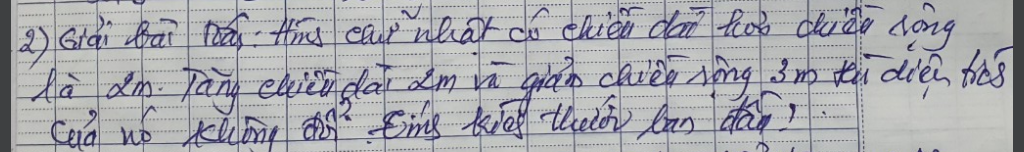 2) Giải bài toán: Hình chữ nhật có chiều dài hơn chiều rộng
là 2m. Tăng chiều dài 2m và giảm chiều rộng 3m thì diện tích
của nó không đổi. Tính kích thước ban đầu?